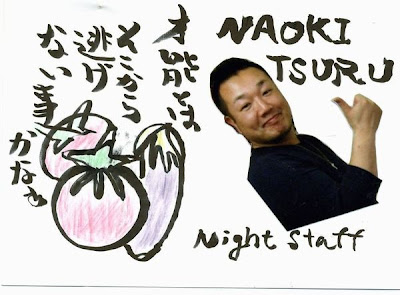 才能は
そこから
逃げ
ない事
かなぁ
NAOKI
TSURU
Night Staff